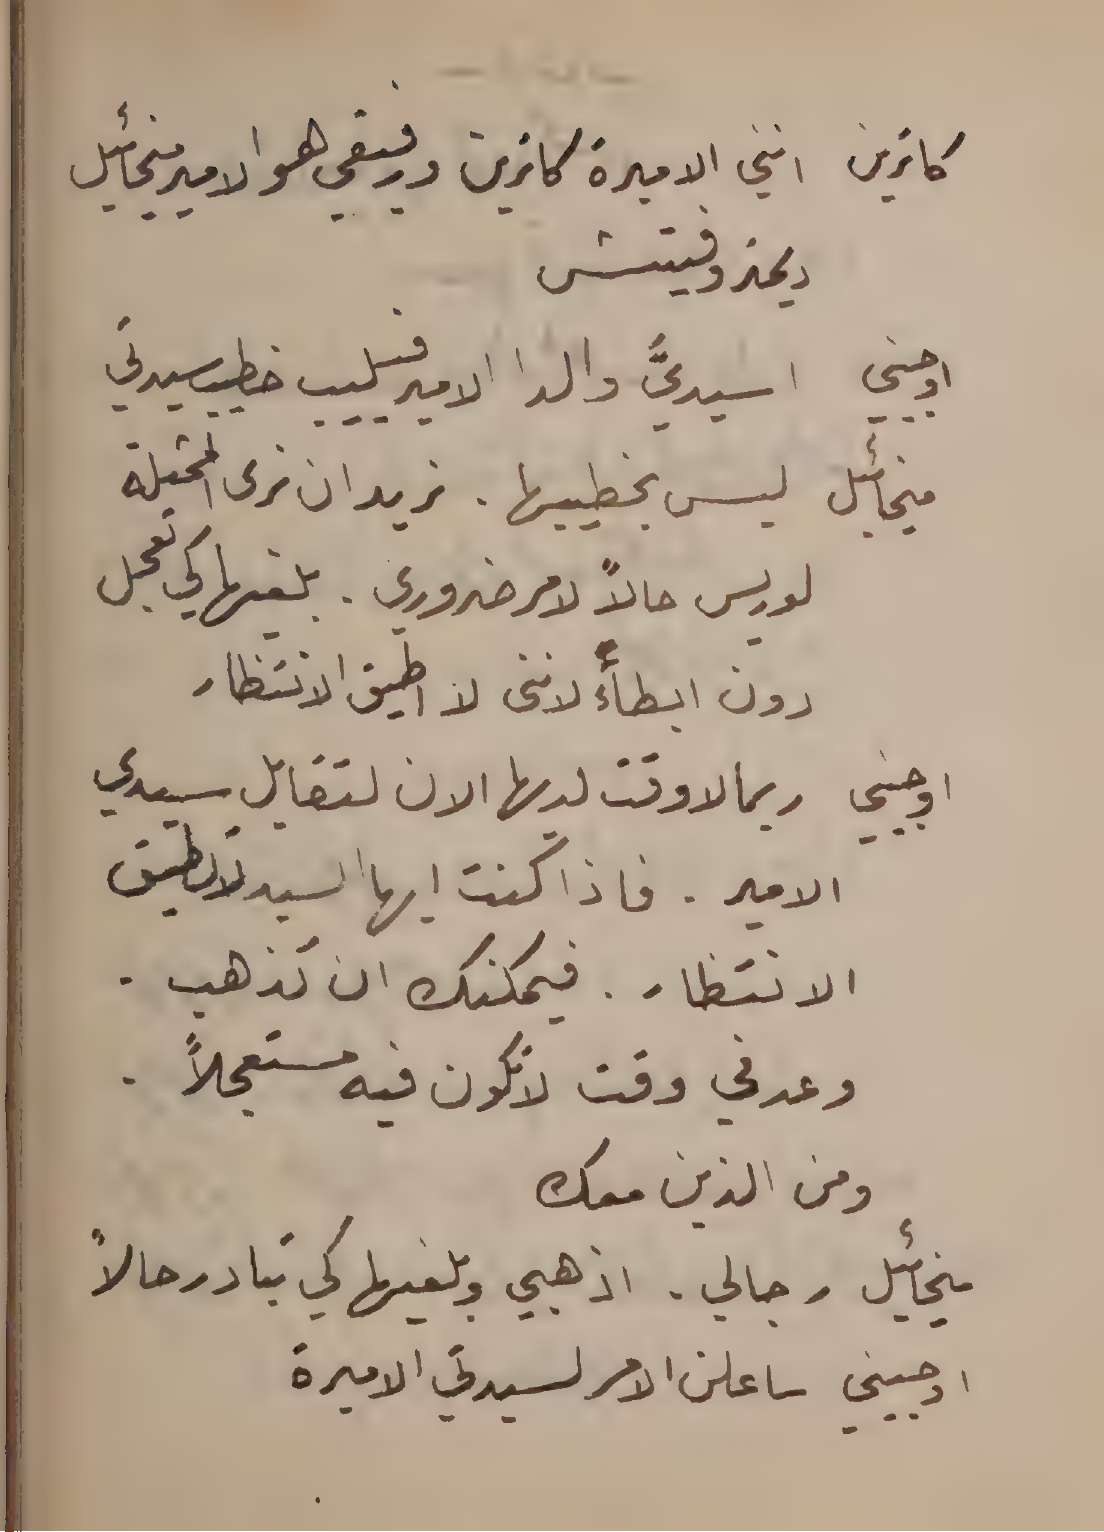 كاترين انني الاميرة كاترين ورفيقي هو الامير ميخائيل
ديمتروفيتش
اوجيني اسيديَّ والدا الامير فيليب خطيب سيدتي
ميخائيل ليس بخطيبها . نريد ان نرى الممثلة
لوريس حالاً لامر ضروري . بلغيها كي تعجل
دون ابطاءٍ لانني لا اطيق الانتظار
اوجيني ربما لا وقت لديها الان لتقابل سيدي
الامير . فاذا كنت ايها السيد لا تطيق
الانتظار . فيمكنك ان تذهب .
وعد في وقت لا تكون فيه مستعجلاً .
ومن الذين معك
ميخائيل رجالي . اذهبي وبلغيها كي تبادر حالاً
اوجيني ساعلن الامر لسيدتي الاميرة